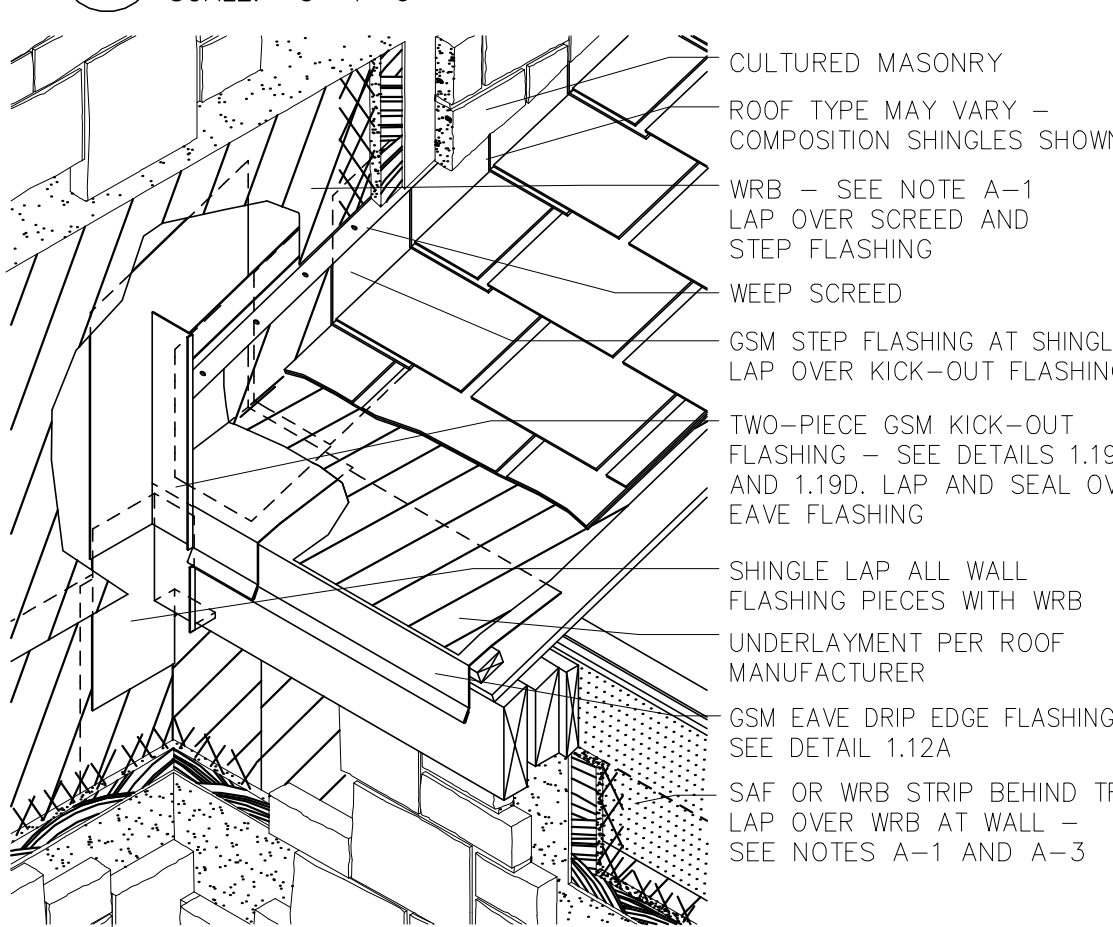 CULTURED MASONRY
ROOF TYPE MAY VARY –
COMPOSITION SHINGLES SHOWN
WRB – SEE NOTE A–1
LAP OVER SCREED AND
STEP FLASHING
WEEP SCREED
GSM STEP FLASHING AT SHINGL
LAP OVER KICK–OUT FLASHING
TWO–PIECE GSM KICK–OUT
FLASHING – SEE DETAILS 1.19
AND 1.19D. LAP AND SEAL OV
EAVE FLASHING
SHINGLE LAP ALL WALL
FLASHING PIECES WITH WRB
UNDERLAYMENT PER ROOF
MANUFACTURER
GSM EAVE DRIP EDGE FLASHING
SEE DETAIL 1.12A
SAF OR WRB STRIP BEHIND
LAP OVER WRB AT WALL –
SEE NOTES A–1 AND A–3